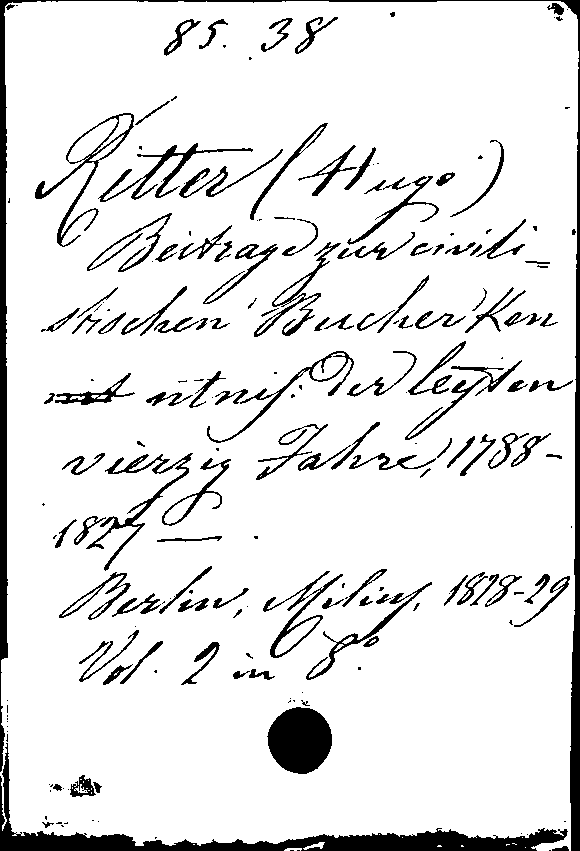 85. 38
Ritter (Hugo)
Beitrage zur civili=
stischen Bucher Ken
ntniß: der leyten
vierzig Jahre, 1788-
1827 —.
Berlin, Milius, 1828-29
Vol. 2 in 8°.